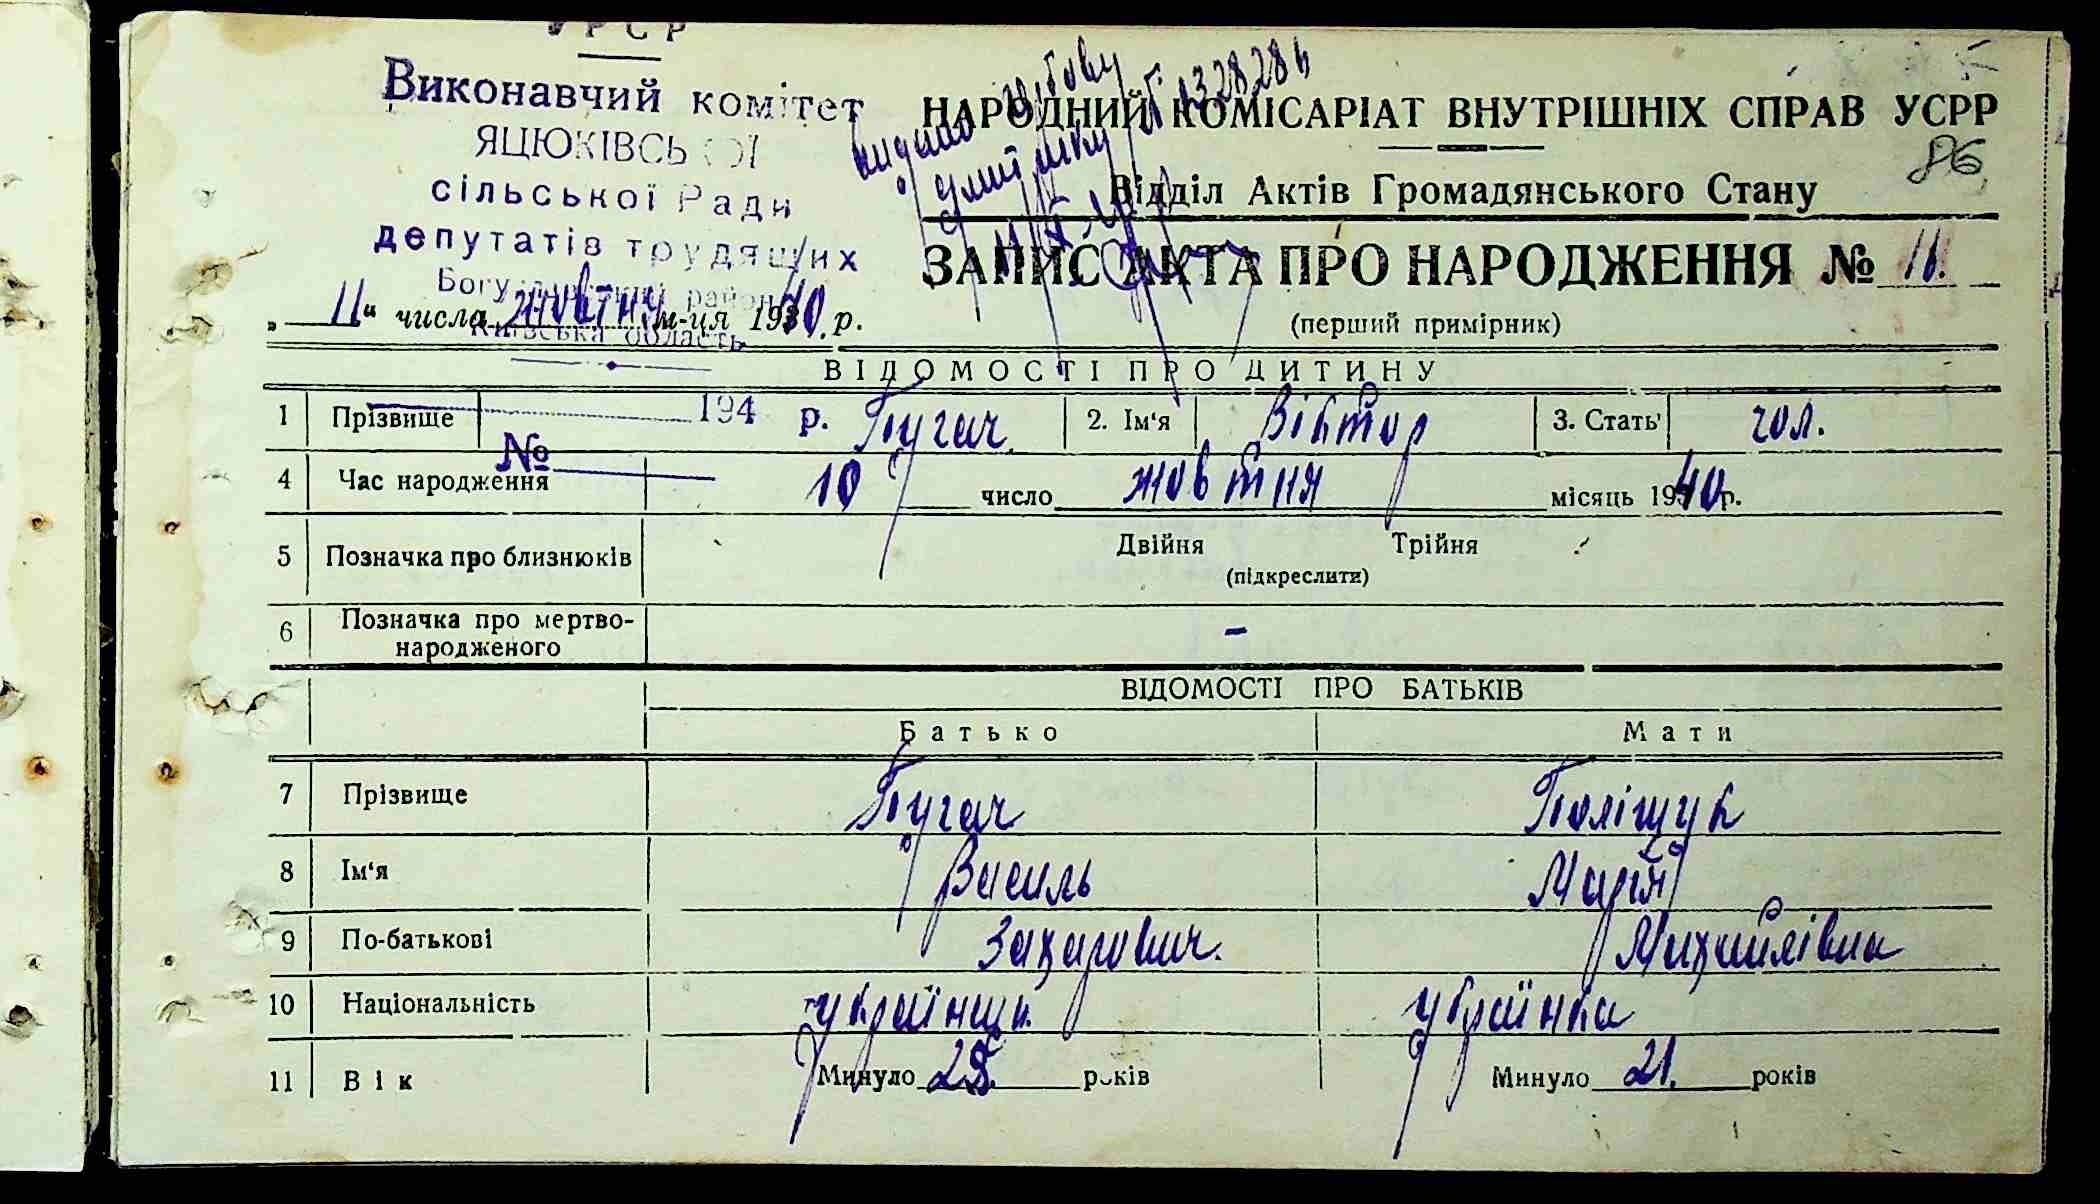 УРСР
Виконавчий комітет
ЯЦЮКІВСЬКОЇ
сільської Ради
депутатів трудящих
Київська область
194 р.
№
НАРОДНИЙ КОМІСАРІАТ ВНУТРІШНІХ СПРАВ УСРР
86
Відділ Актів Громадянського Стану
ЗАПИС АКТА ПРО НАРОДЖЕННЯ № 11.
„11“ числа жовтня м-ця 1940 р.
(перший примірник)
ВІДОМОСТІ ПРО ДИТИНУ
1 Прізвище Пугач 2. Ім'я Віктор 3. Стать чол.
4 Час народження 10 число жовтня місяць 1940 р.
5 Позначка про близнюків Двійня Трійня
(підкреслити)
6 Позначка про мертво-
народженого –
ВІДОМОСТІ ПРО БАТЬКІВ
Батько Мати
7 Прізвище Пугач Поліщук
8 Ім'я Василь Марія
9 По-батькові Захарович. Михайлівна
10 Національність українець українка
11 Вік Минуло 25. років Минуло 21. років